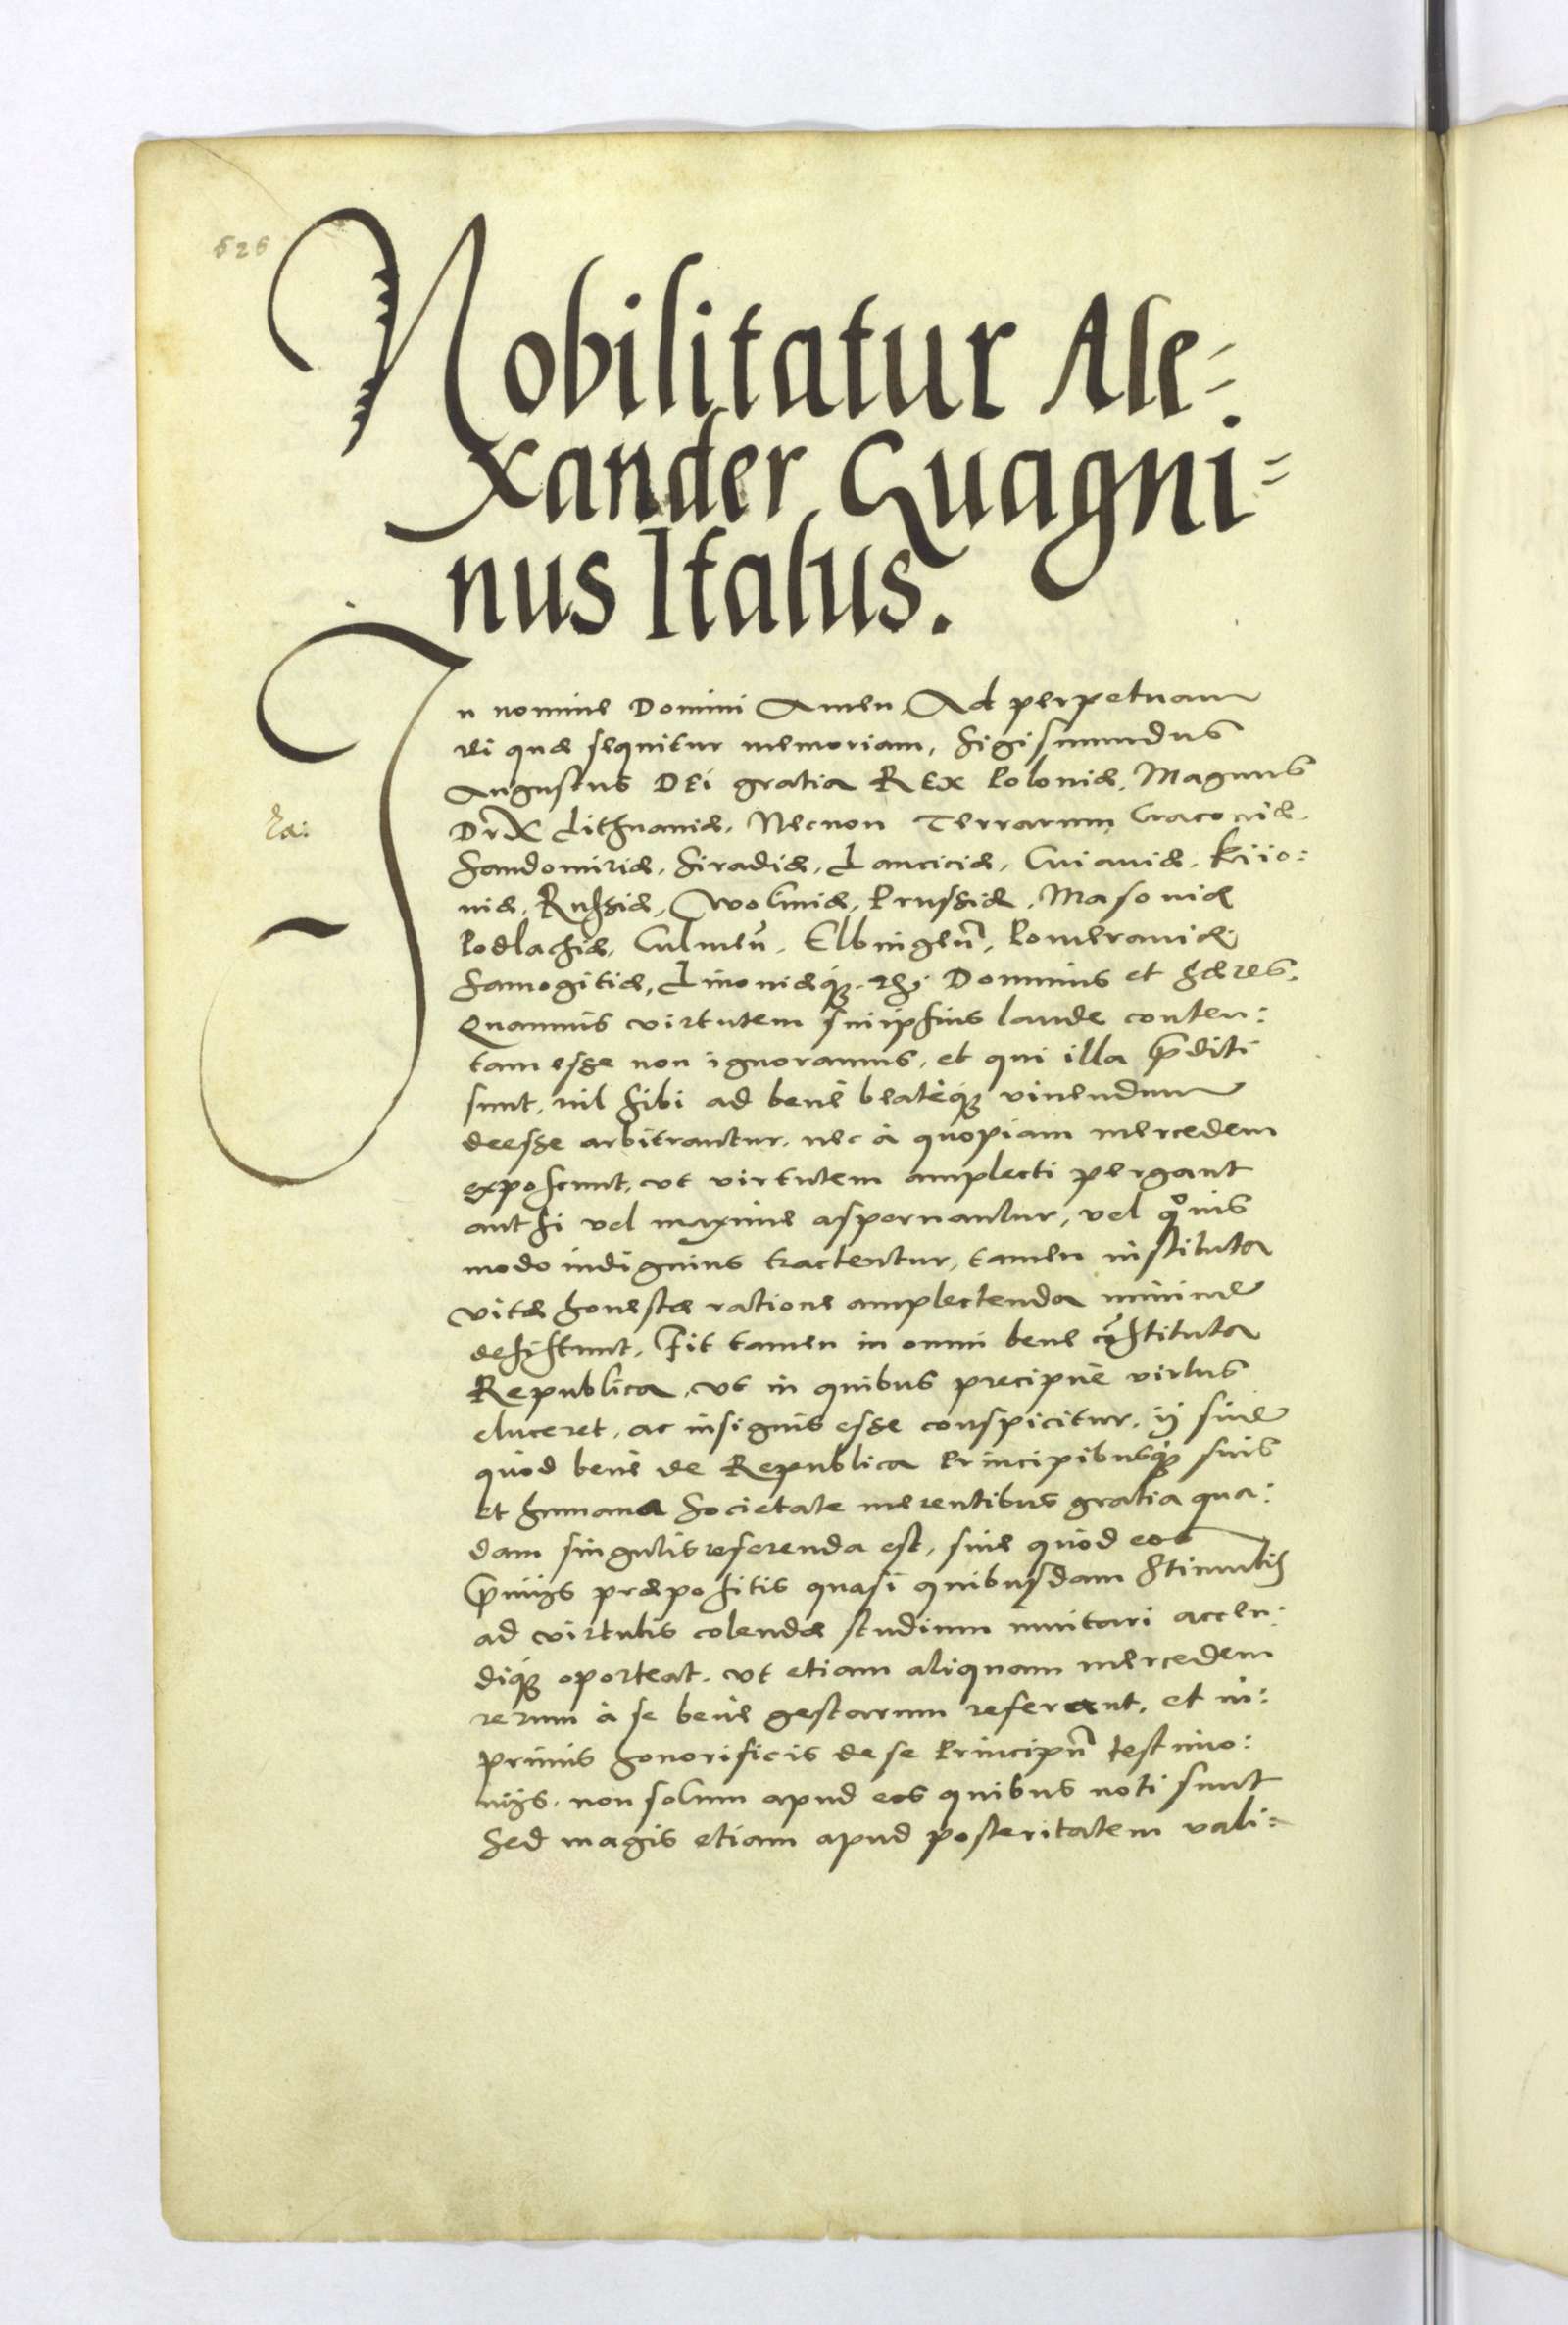 626
Nobilitatur Ale=
xander Guagni=
nus Italus.
In nomine Domini Amen Ad perpetuam
rei quæ sequitur memoriam, Sigismundus
Augustus Dei gratia Rex Poloniæ, Magnus
Dux Lithuaniæ, Necnon Terrarum Cracoviæ,
Sandomiriæ, Siradiæ, Lanciciæ, Cuiaviæ, Kiio:
viæ, Russiæ, Woliniæ, Prussiæ, Masoviæ
Podlachiæ, Culmeñ, Elbingeñ, Pomeraniæ
Samogitiæ, Livoniæq́ꝫ. Dominus et hæres.
Quamvis virtutem suiipsius laude conten:
tam esse non ignoramus, et qui illa p̃diti
sunt, nil sibi ad benè beatèq́ꝫ vivendum
deesse arbitrantur, nec à quopiam mercedem
exposcunt, ut virtutem amplecti pergant
aut si vel maxime aspernantur, vel qͦvis
modo indignius tractentur, tamen instituta
vitæ honestæ ratione amplectenda minime
desistunt, Fit tamen in omni bene cõstituta
Republica, ut in quibus precipuè virtus
eluceret, ac insignis esse conspicitur, ij sive
quòd benè de Republica Principibusq́ꝫ suis
et humana societate merentibus gratia quæ:
dam singulis referenda est, sive quòd eos
p̃mijs præpositis quasi quibusdam stimulis
ad virtutis colendæ studium invitari accen:
diq́ꝫ oporteat, ut etiam aliquam mercedem
rerum à se benè gestarum referant, et in:
primis honorificis de se Principũ testimo:
nijs, non solum apud eos quibus noti sunt
Sed magis etiam apud posteritatem vali=